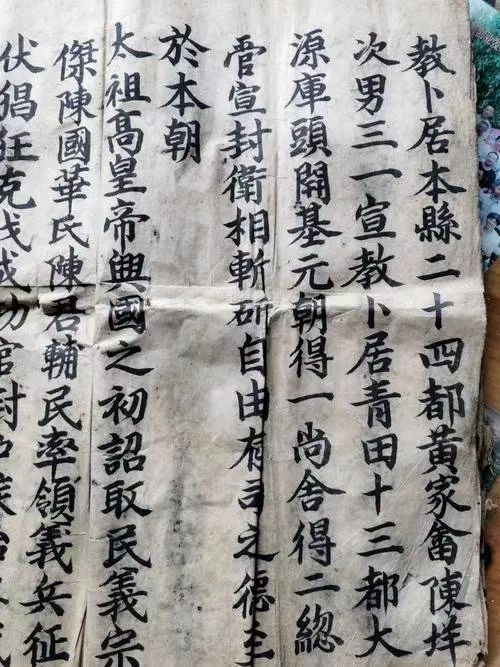 教卜居本縣二十四都黃家畬陳垟
次男三一宣教卜居青田十三都大
源庫頭開基元朝得一尚舍得二總
管宣封衛相斬斫自由有言之德至
於本朝
太祖高皇帝興國之初詔取民義宗
傑陳國華氏陳君輔民率領義兵征
伏猖狂克伐成功官封